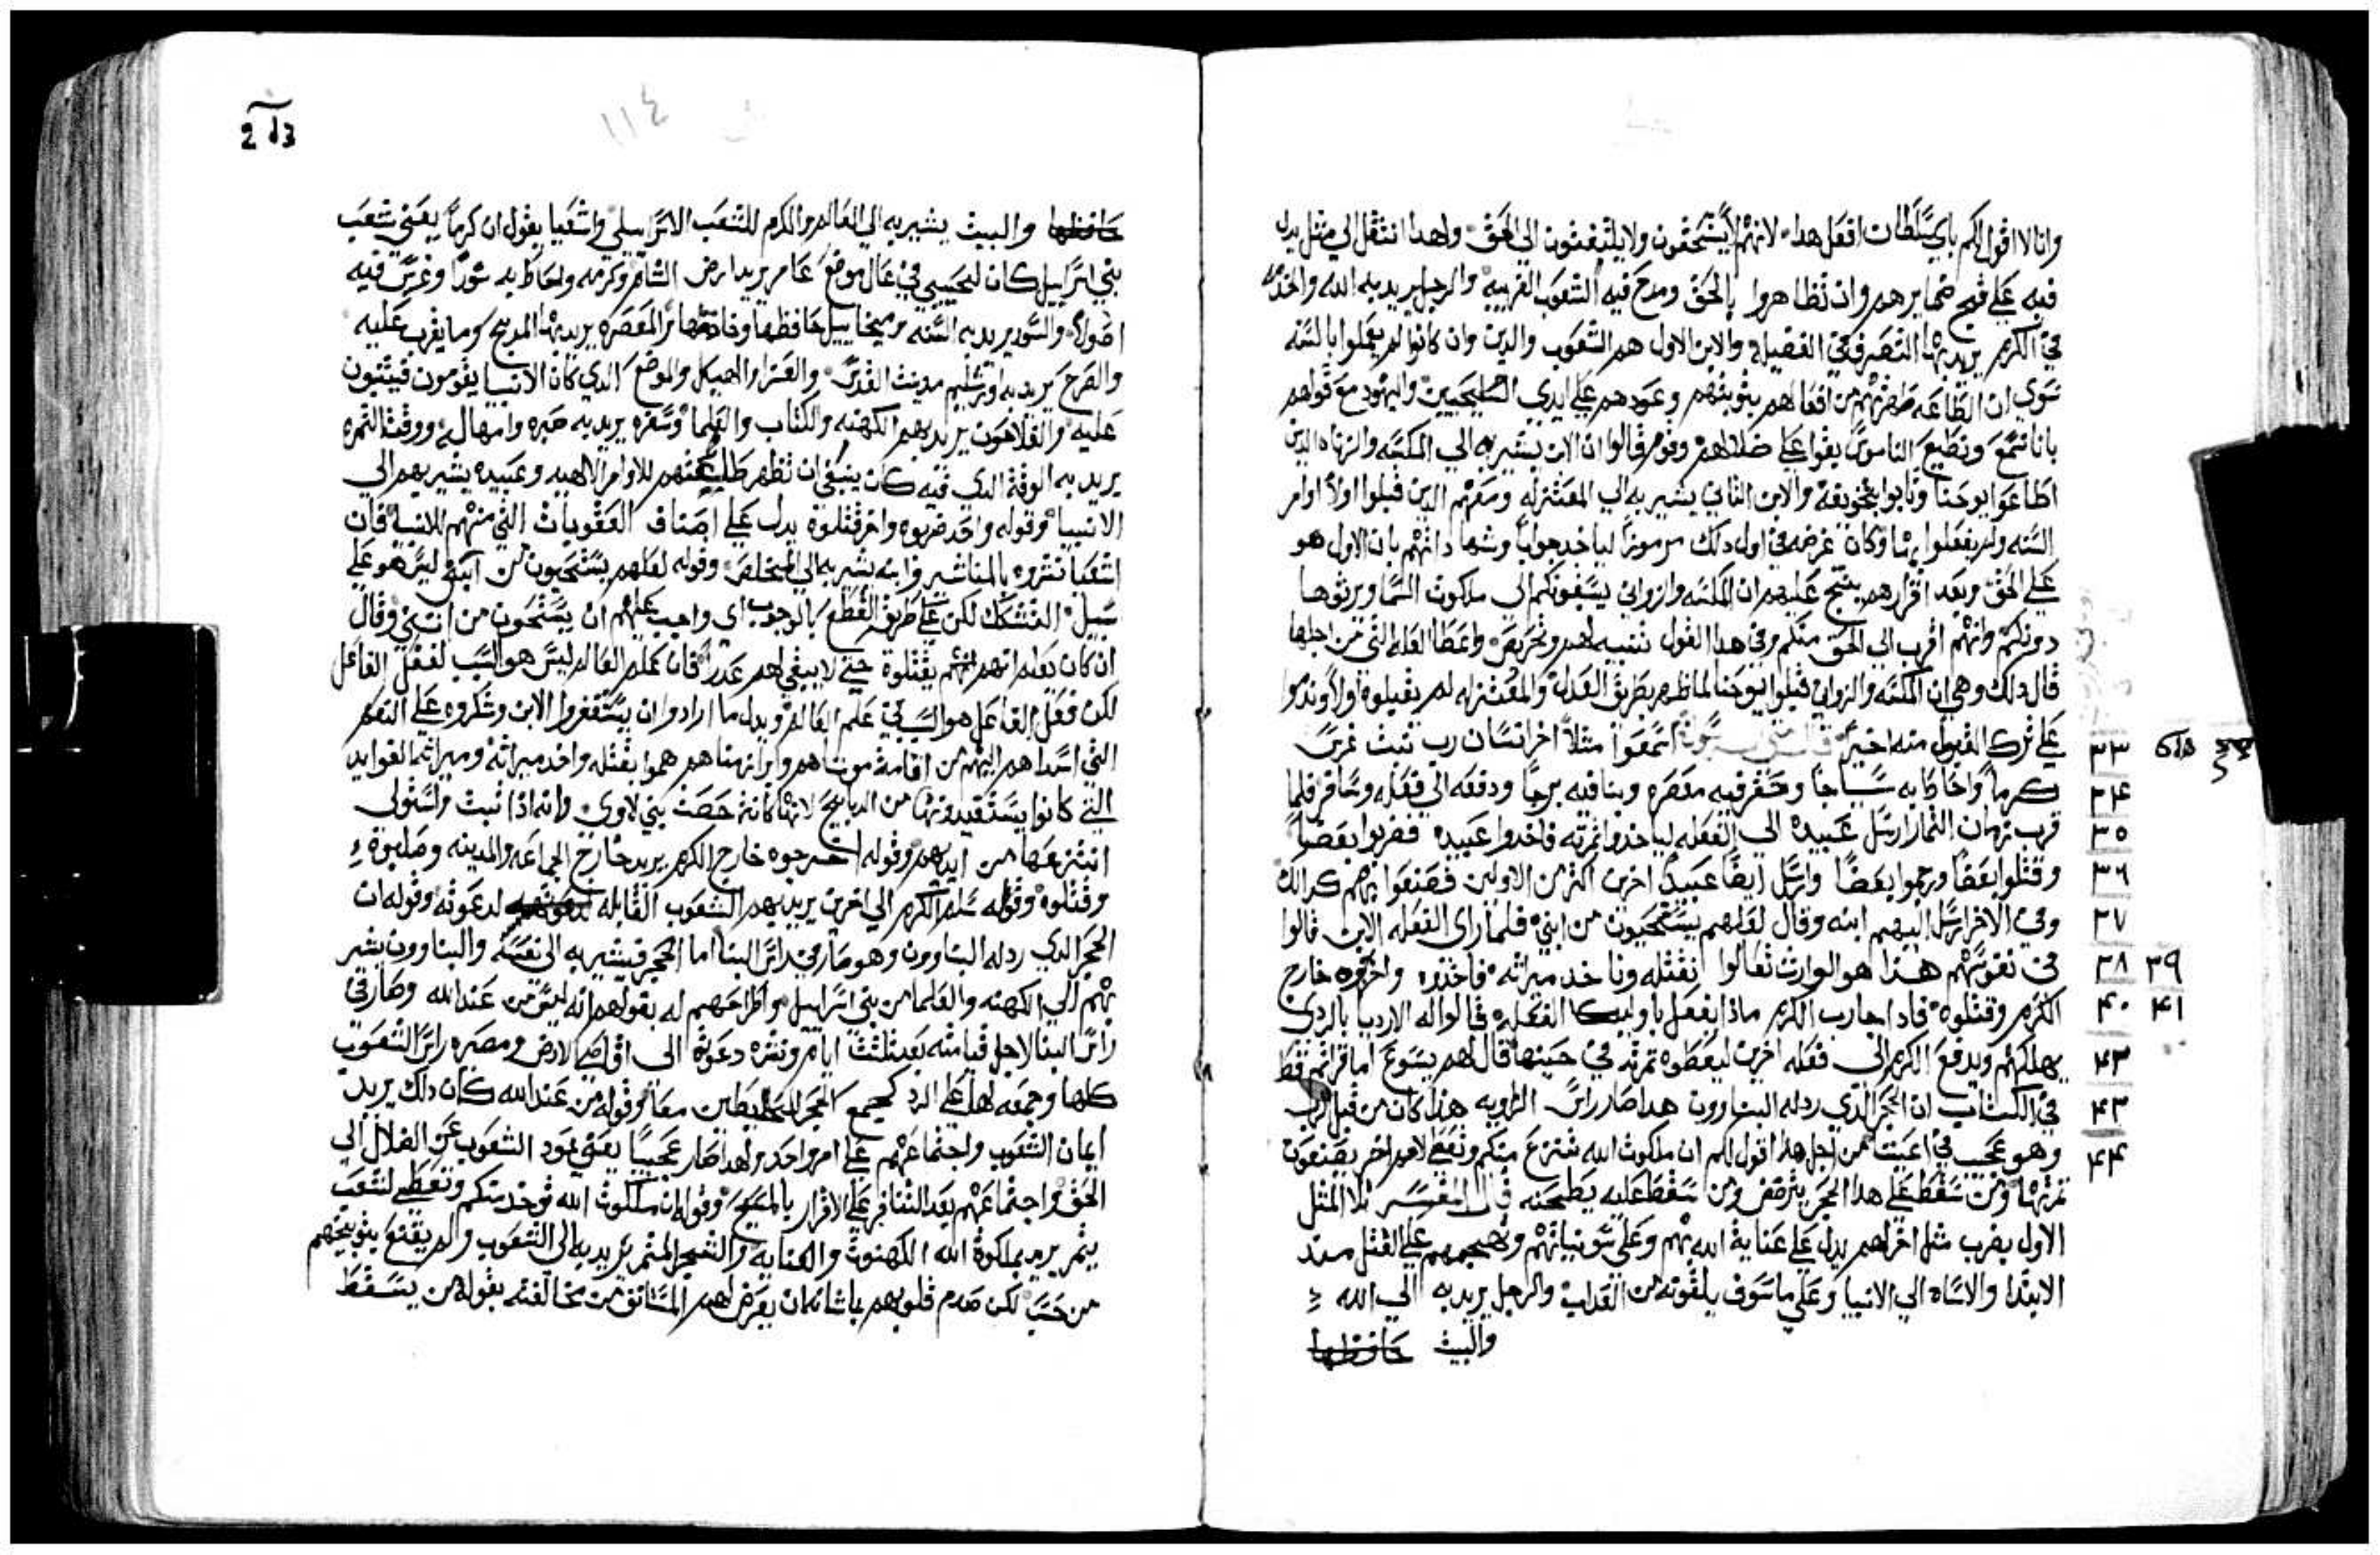 وانا لا اقول لكم باي سلطان افعل هدا لانهم لا يستحقون ولا يلتفتون الي الحق ولهدا انتقل الي مثل يدل
فيه علي قبح ضمايرهم وان تظاهروا بالحق ومدح فيه الشعوب الغريبه والرجل يريد به الله واخده
في الكرم يريد بها التصرف في الفضيله والابن الاول هم الشعوب والدين وان كانوا لم يعملوا بالسنه
سوي ان الطاعه ظهرت من افعالهم بتوبتهم وعودهم علي ايدي السليحيين واليهود مع قولهم
باننا نسمع ونطيع الناموس بقوا علي ضلالهم وقوم قالوا ان الابن يشير به الي المكسه والزناه الدين
اطاعوا يوحنا وتابوا بتخويفه والابن الثاني يشير به الي المعتزله ومعرفتهم الدين قبلوا اولا اوامر
السنه ولم يفعلوا بها وكان غرضه في اول دلك مرموزا لياخد جوابا وشهادتهم بان الاول هو
علي الحق وبعد اقرارهم ينتج عليهم ان المكسه والزواني يسبقونكم الي ملكوت السما ويرثوها
دونكم وانهم اقرب الي الحق منكم وفي هدا القول تنبيه لهم وتحريض واعطا العله التي من اجلها
قال دلك وهي ان المكسه والزواني قبلوا يوحنا لما ظهر بطريق العداله والمعتزله لم يقبلوه اولا وندموا
علي ترك القبول منه اخيرا اسمعوا مثلا اخر انسان رب بيت غرس
كرما واحاط به سياجا وحفر فيه معصره وبنا فيه برجا ودفعه الي فعله وسافر فلما
قرب زمان الثمار ارسل عبيده الي الفعله لياخدوا ثمرته فاخدوا عبيده فضربوا بعضا
وقتلوا بعضا ورجموا بعضا وارسل ايضا عبيدا اخرين اكثر من الاولين فصنعوا بهم كدالك
وفي الاخر ارسل اليهم ابنه وقال لعلهم يستحيون من ابني فلما راي الفعله الابن قالوا
في نفوسهم هدا هو الوارث تعالوا نقتله وناخد ميراثه فاخدوه واخرجوه خارج
الكرم وقتلوه فادا جا رب الكرم مادا يفعل باوليك الفعله قالوا له الارديا بالردي
يهلكهم ويدفع الكرم الي فعله اخرين ليعطوه ثمرته في حينها قال لهم يسوع اما قراتم قط
في الكتاب ان الحجر الدي ردله البناوون هدا صار راس الزاويه هدا كان من قبل الرب
وهو عجب في اعيننا من اجل هدا اقول لكم ان ملكوت الله تنتزع منكم وتعطي لامم اخر يصنعون
ثمرتها ومن سقط علي هدا الحجر يترضض ومن سقط عليه يطحنه قال المفسر تلا المثل
الاول بضرب مثل اخر لهم يدل علي عناية الله بهم وعلي سو نياتهم وتهجمهم علي القتل مند
الابتدا والاساه الي الانبيا وعلي ما سوف يلقونه من العداب والرجل يريد به الي الله
والبيت حافظها
٣٣
٣٤
٣٥
٣٦
٣٧
٣٨ ٣٩
٤٠ ٤١
٤٣
٤٣
٤٤
١١٤
حافظها والبيت يشير به الي العالم والكرم للشعب الاسراييلي واشعيا يقول ان كرما يعني شعب
بني اسراييل كان لحبيبي في عال موضع عامر يريد ارض الشام وكرمه واحاط به سورا وغرس فيه
اصولا والسور يريد به السنه وميخاييل حافظها وخادمها والمعصره يريد بها المدبح وما يقرب عليه
والصرح يريد به اورشليم مدينت القدس والعزاز الهيكل والموضع الدي كان الانبيا يقومون فيتنبون
عليه والفلاحون يريد بهم الكهنه والكتاب والعلما وسفره يريد به صبره وامهاله ووقت الثمره
يريد به الوقت الدي فيه كان ينبغي ان تظهر طاعتهم للاوامر الالهيه وعبيده يشير بهم الي
الانبيا وقوله واحد ضربوه واخر قتلوه يدل علي اصناف العقوبات التي منهم للانبيا فان
اشعيا نشروه بالمناشير وابنه يشير به الي المخلص وقوله لعلهم يستحيون من ابني ليس هو علي
سبيل التشكك لكن علي طريق القطع بالوجوب اي واجب عليهم ان يستحون من ابني وقال
ان كان يعلم انهم يقتلوه حتي لا يبقي لهم عدرا فان علم العالم ليس هو السبب لفعل الفاعل
لكن فعل الفاعل هو السبب في علم العالم وبدل ما ارادوا ان يستغفروا الابن وشكروه علي النعم
التي اسداهم اليهم من اقامة موتاهم وابرا زمناهم هموا بقتله واخد ميراثه وميراثه الفوايد
التي كانوا يستفيدونها من الدبايح لانها كانت حصت بني لاوي وانه ادا ثبت واستولي
انتزعها من ايديهم وقوله اخرجوه خارج الكرم يريد خارج الجماعه والمدينه وصلبوه
وقتلوه وقوله سلم الكرم الي اخرين يريد بهم الشعوب القابله لدعوته وقوله ان
الحجر الدي ردله البناوون وهو صار في راس البنا اما الحجر فيشير به الي نفسه والبناوون يشير
بهم الي الكهنه والعلما من بني اسراييل واطراحهم له بقولهم انه ليس من عند الله وصار في
راس البنا لاجل قيامته بعد ثلثت ايام ونشره دعوته الي اقاصي الارض ومصيره راس الشعوب
كلها وجمعه لها علي الرد كجمع الحجر للحايطين معا وقوله من عند الله كان دلك يريد
ايمان الشعوب واجتماعهم علي امر واحد ولهدا صار عجيبا يعني بعود الشعوب عن الضلال الي
الحق واجتماعهم بعد التنافر علي الاقرار بالمسيح وقوله ان ملكوت الله توخد منكم وتعطي لشعب
يثمر يريد بملكوة الله الكهنوت والعنايه والشعب المثمر يريد به الي الشعوب ولم يقنع بتوبيخهم
من حسب لكن صدم قلوبهم بما شانه ان يعرض لهم المستانف من مخالفته بقوله من يسقط